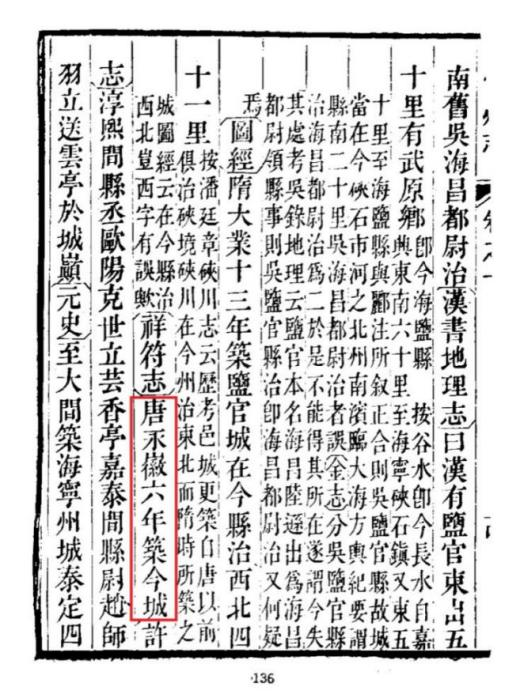 南舊吳海昌都尉治漢書地理志曰漢有鹽官東出五
十里有武原鄉
即今海鹽縣 按谷水即今長水自嘉
興東南六十里至海寧硤石鎮又東五
十里至海鹽縣與酈注所叙正合則吳鹽官縣故城
當在今硤石市河之北州南濱臨大海方輿紀要謂
縣南二十里吳海昌都尉治者誤金志分吳鹽官縣
治海昌都尉治爲二於是不能得其所在遂謂今失
其處考吳錄地理云鹽官本名海昌陸遜出爲海昌
都尉領縣事則吳鹽官縣治即海昌都尉治又何疑
焉
圖經隋大業十三年築鹽官城在今縣治西北四
十一里
按潘廷章硤川志云歷考邑城更築自唐以前
俱治硤境硤川在今州治東北而隋時所築之
城圖經云在今縣治
西北豈西字有誤歟
祥符志唐永徽六年築今城許
志淳熙間縣丞歐陽克世立芸香亭嘉泰間縣尉趙師
羽立送雲亭於城巔元史至大間築海寧州城泰定四
·136